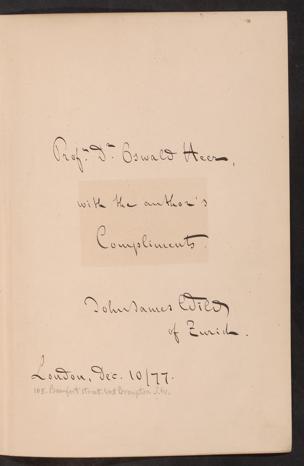 Profr. Dr. Oswald Heer,
with the author's
Compliments.
John James Wild
of Zurich.
London, Dec. 10/77.
Street West Brompton S.W.